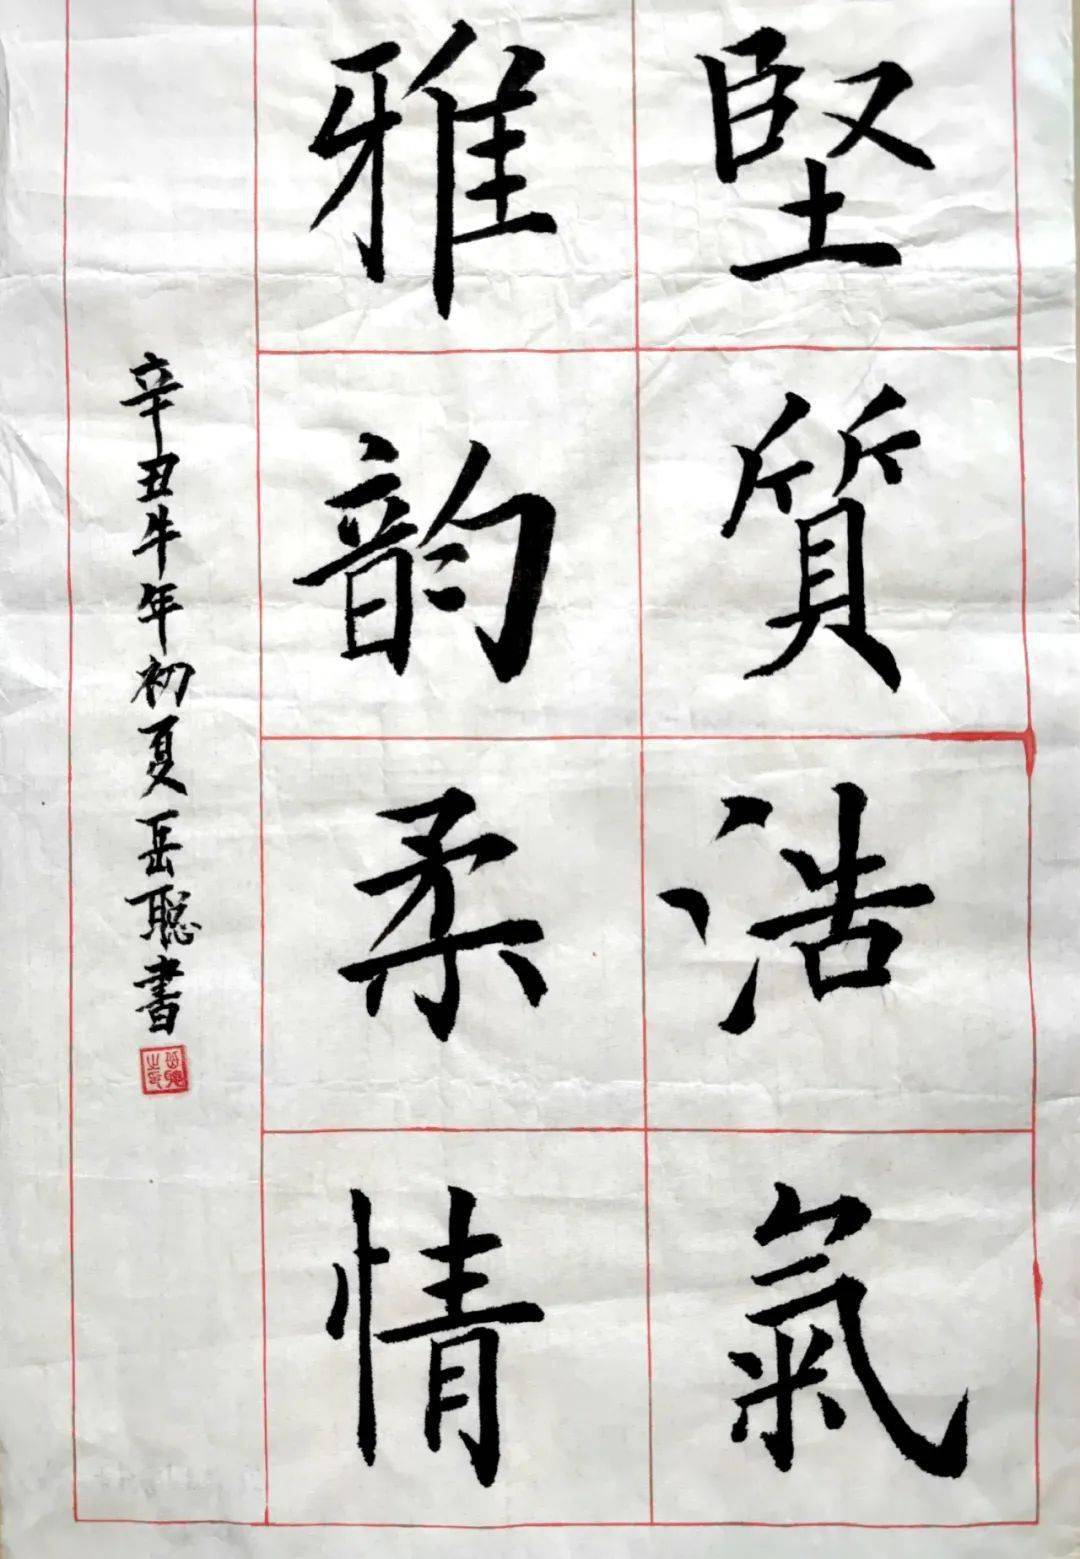 堅質浩氣
雅韵柔情
辛丑牛年初夏岳聪書